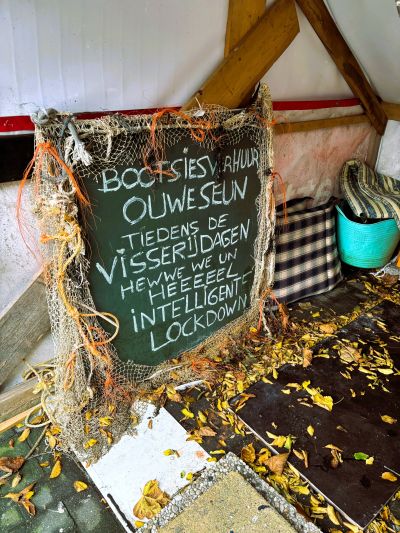 BOOTSIESVERHUUR
OUWESEUN
TIEDENS DE
VISSERIJDAGEN
HEWWE WE UN
HEEEEEL
INTELLIGENTE
LOCKDOWN